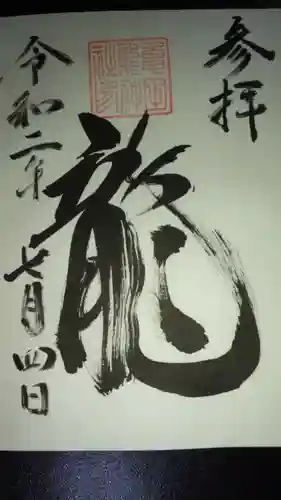 参拝
龍
令和二年七月四日